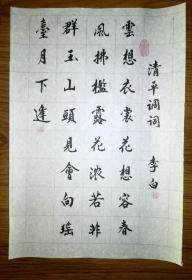 清平调词 李白
雲想衣裳花想容春
風拂檻露花濃若非
群玉山頭見會向瑶
臺月下逢